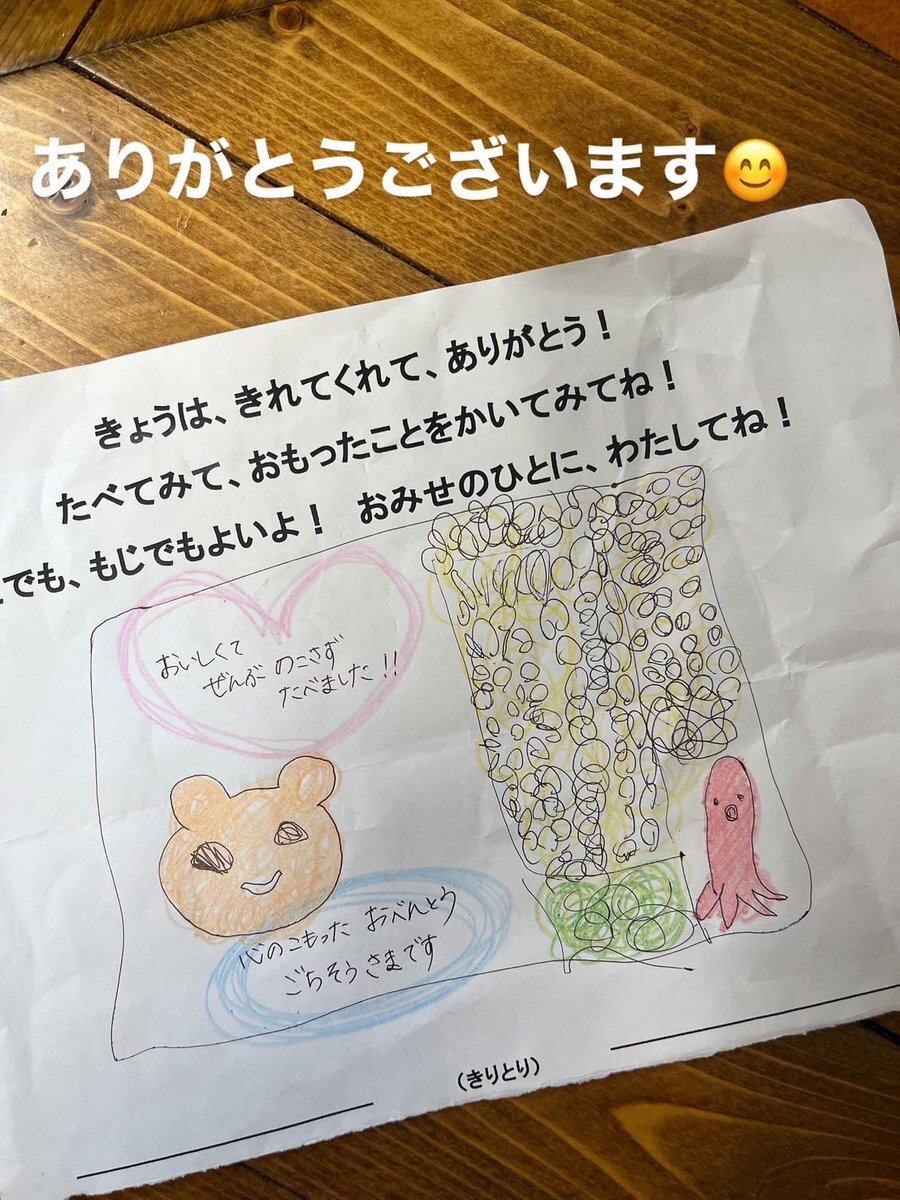 ありがとうございます😊
きょうは、きれてくれて、ありがとう！
たべてみて、おもったことをかいてみてね！
でも、もじでもよいよ！　おみせのひとに、わたしてね！
おいしくて
ぜんぶ のこさず
たべました!!
心のこもった おべんとう
ごちそうさまです
（きりとり）